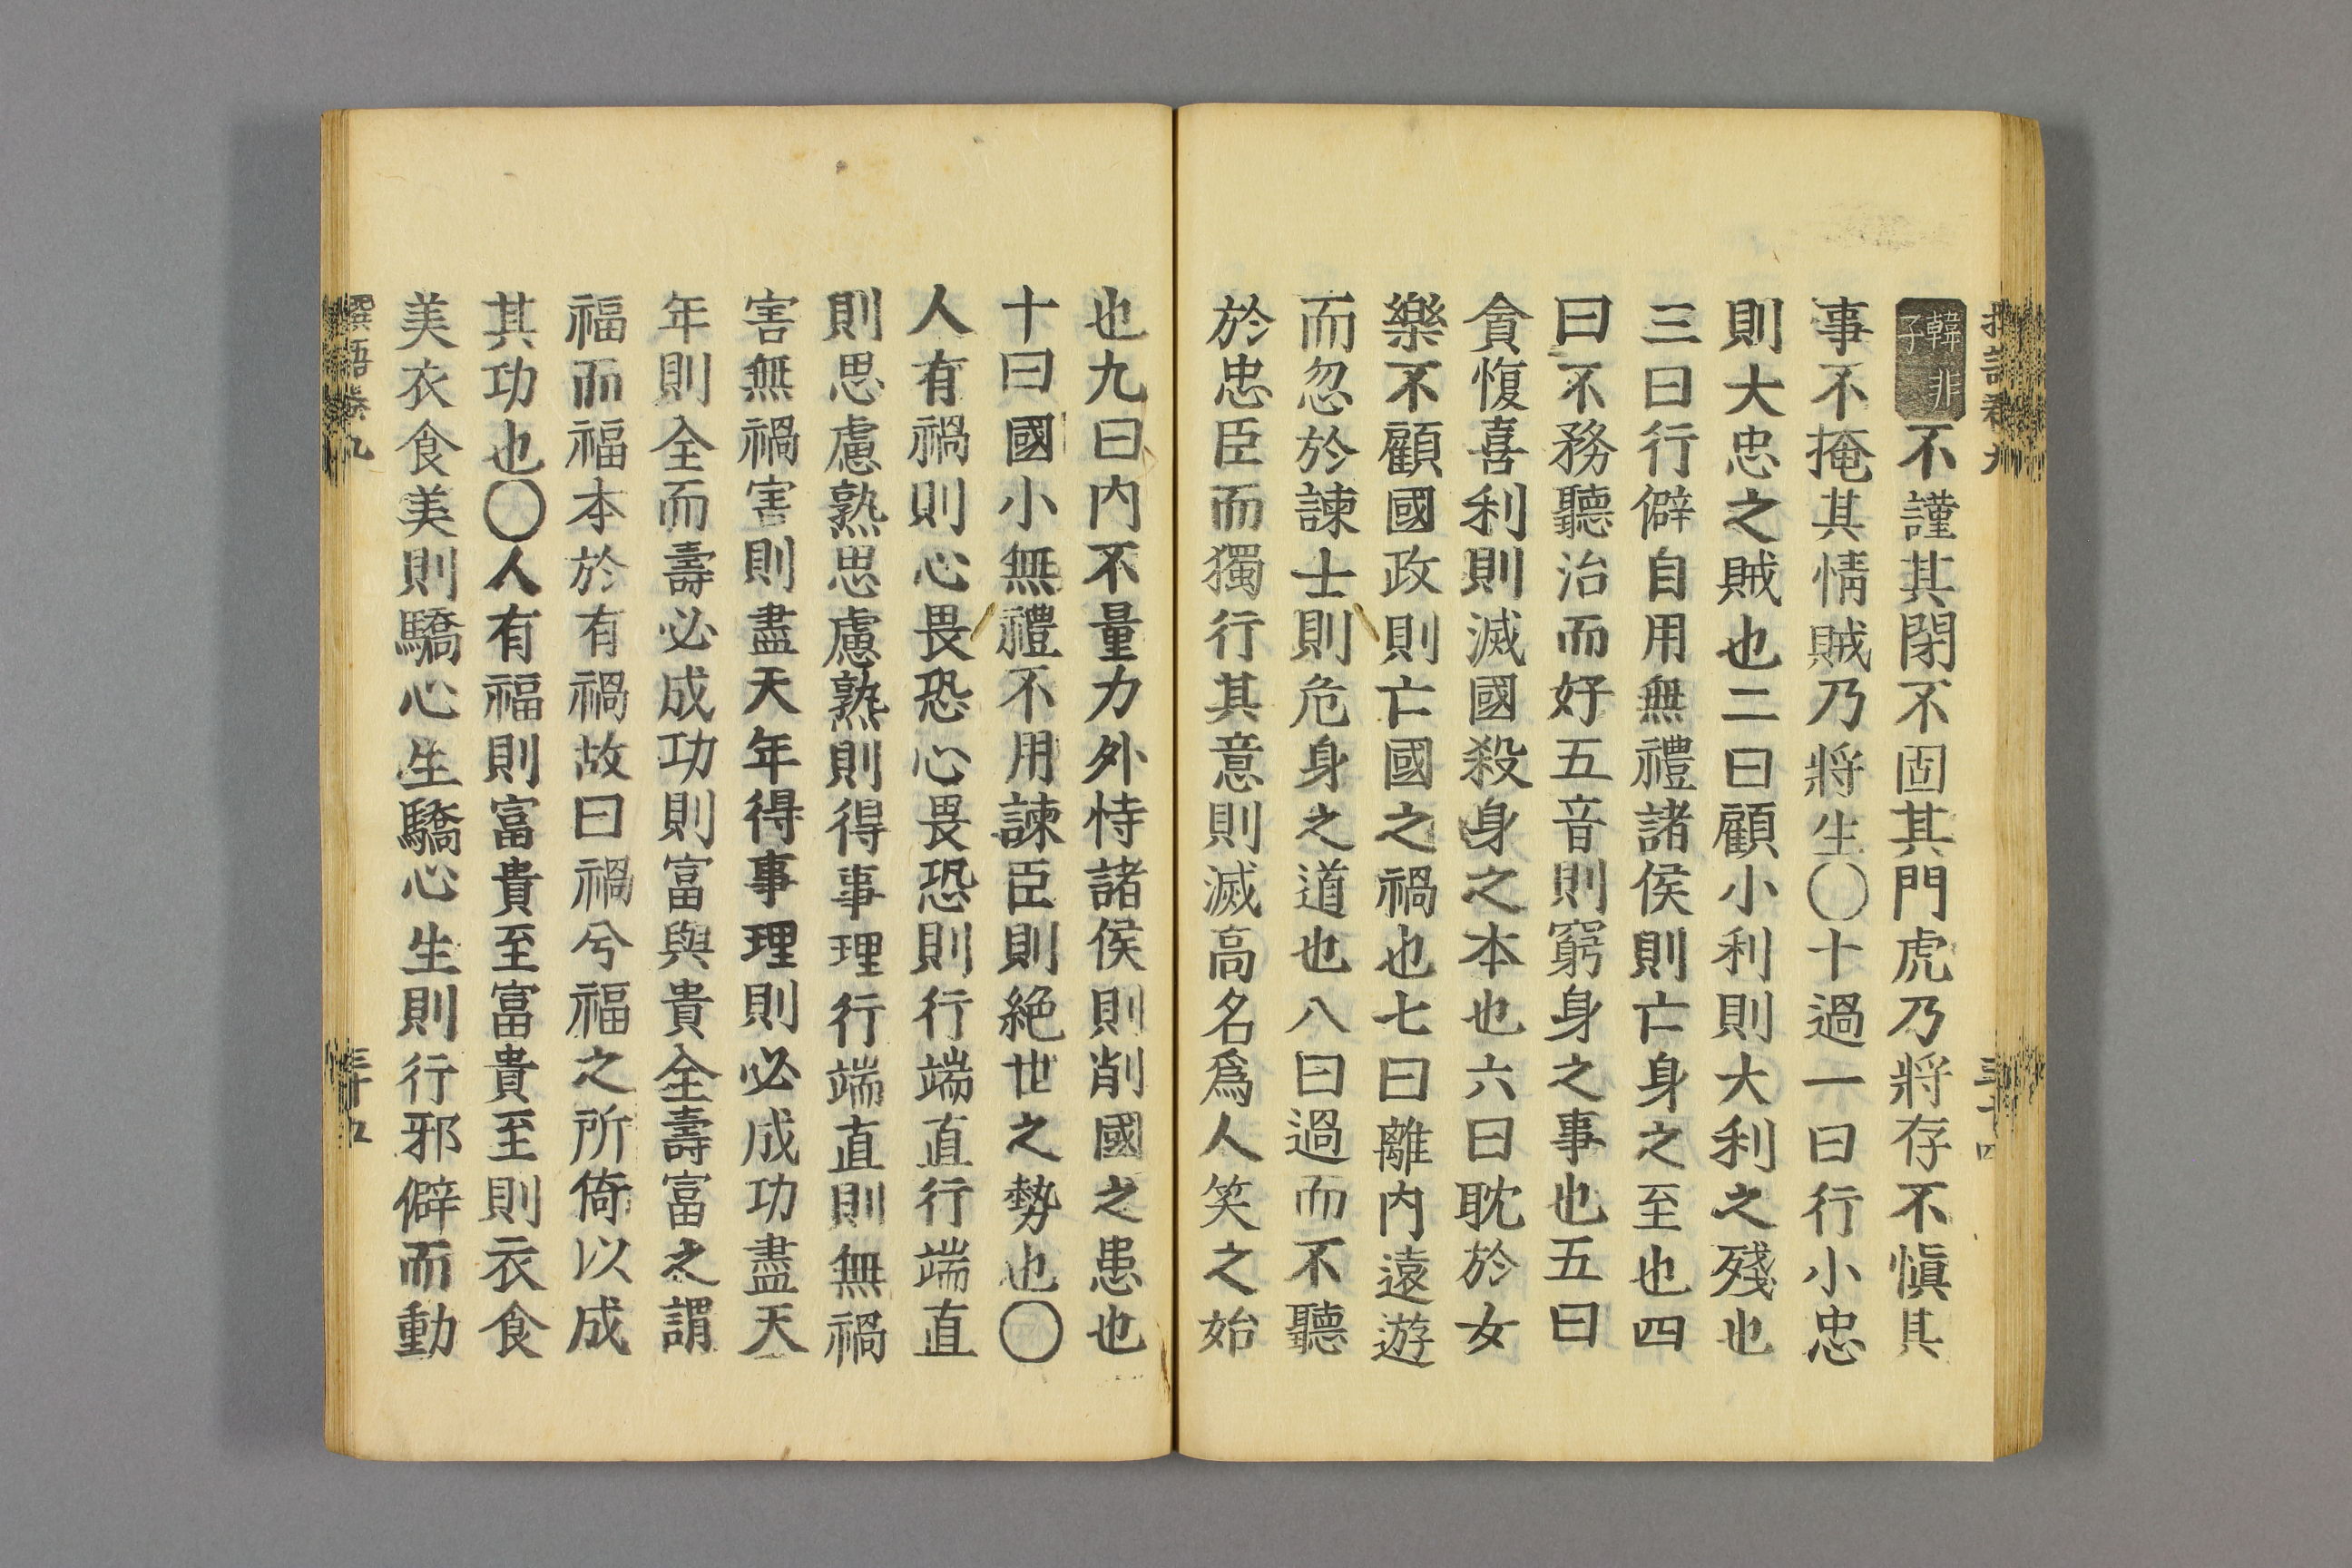 韓非子不謹其閉不固其門虎乃將存不愼其
事不掩其情賊乃將生〇十過一曰行小忠
則大忠之賊也二曰顧小利則大利之殘也
三曰行僻自用無禮諸侯則亡身之至也四
曰不務聽治而好五音則窮身之事也五曰
貪愎喜利則滅國殺身之本也六曰耽於女
樂不顧國政則亡國之禍也七曰離内遠遊
而忽於諫士則危身之道也八曰過而不聽
於忠臣而獨行其意則滅高名爲人笑之始
也九曰内不量力外恃諸侯則削國之患也
十曰國小無禮不用諫臣則絶世之勢也〇
人有禍則心畏恐心畏恐則行端直行端直
則思慮熟思慮熟則得事理行端直則無禍
害無禍害則盡天年得事理則必成功盡天
年則全而壽必成功則富與貴全壽富之謂
福而福本於有禍故曰禍兮福之所倚以成
其功也〇人有福則富貴至富貴至則衣食
美衣食美則驕心生驕心生則行邪僻而動